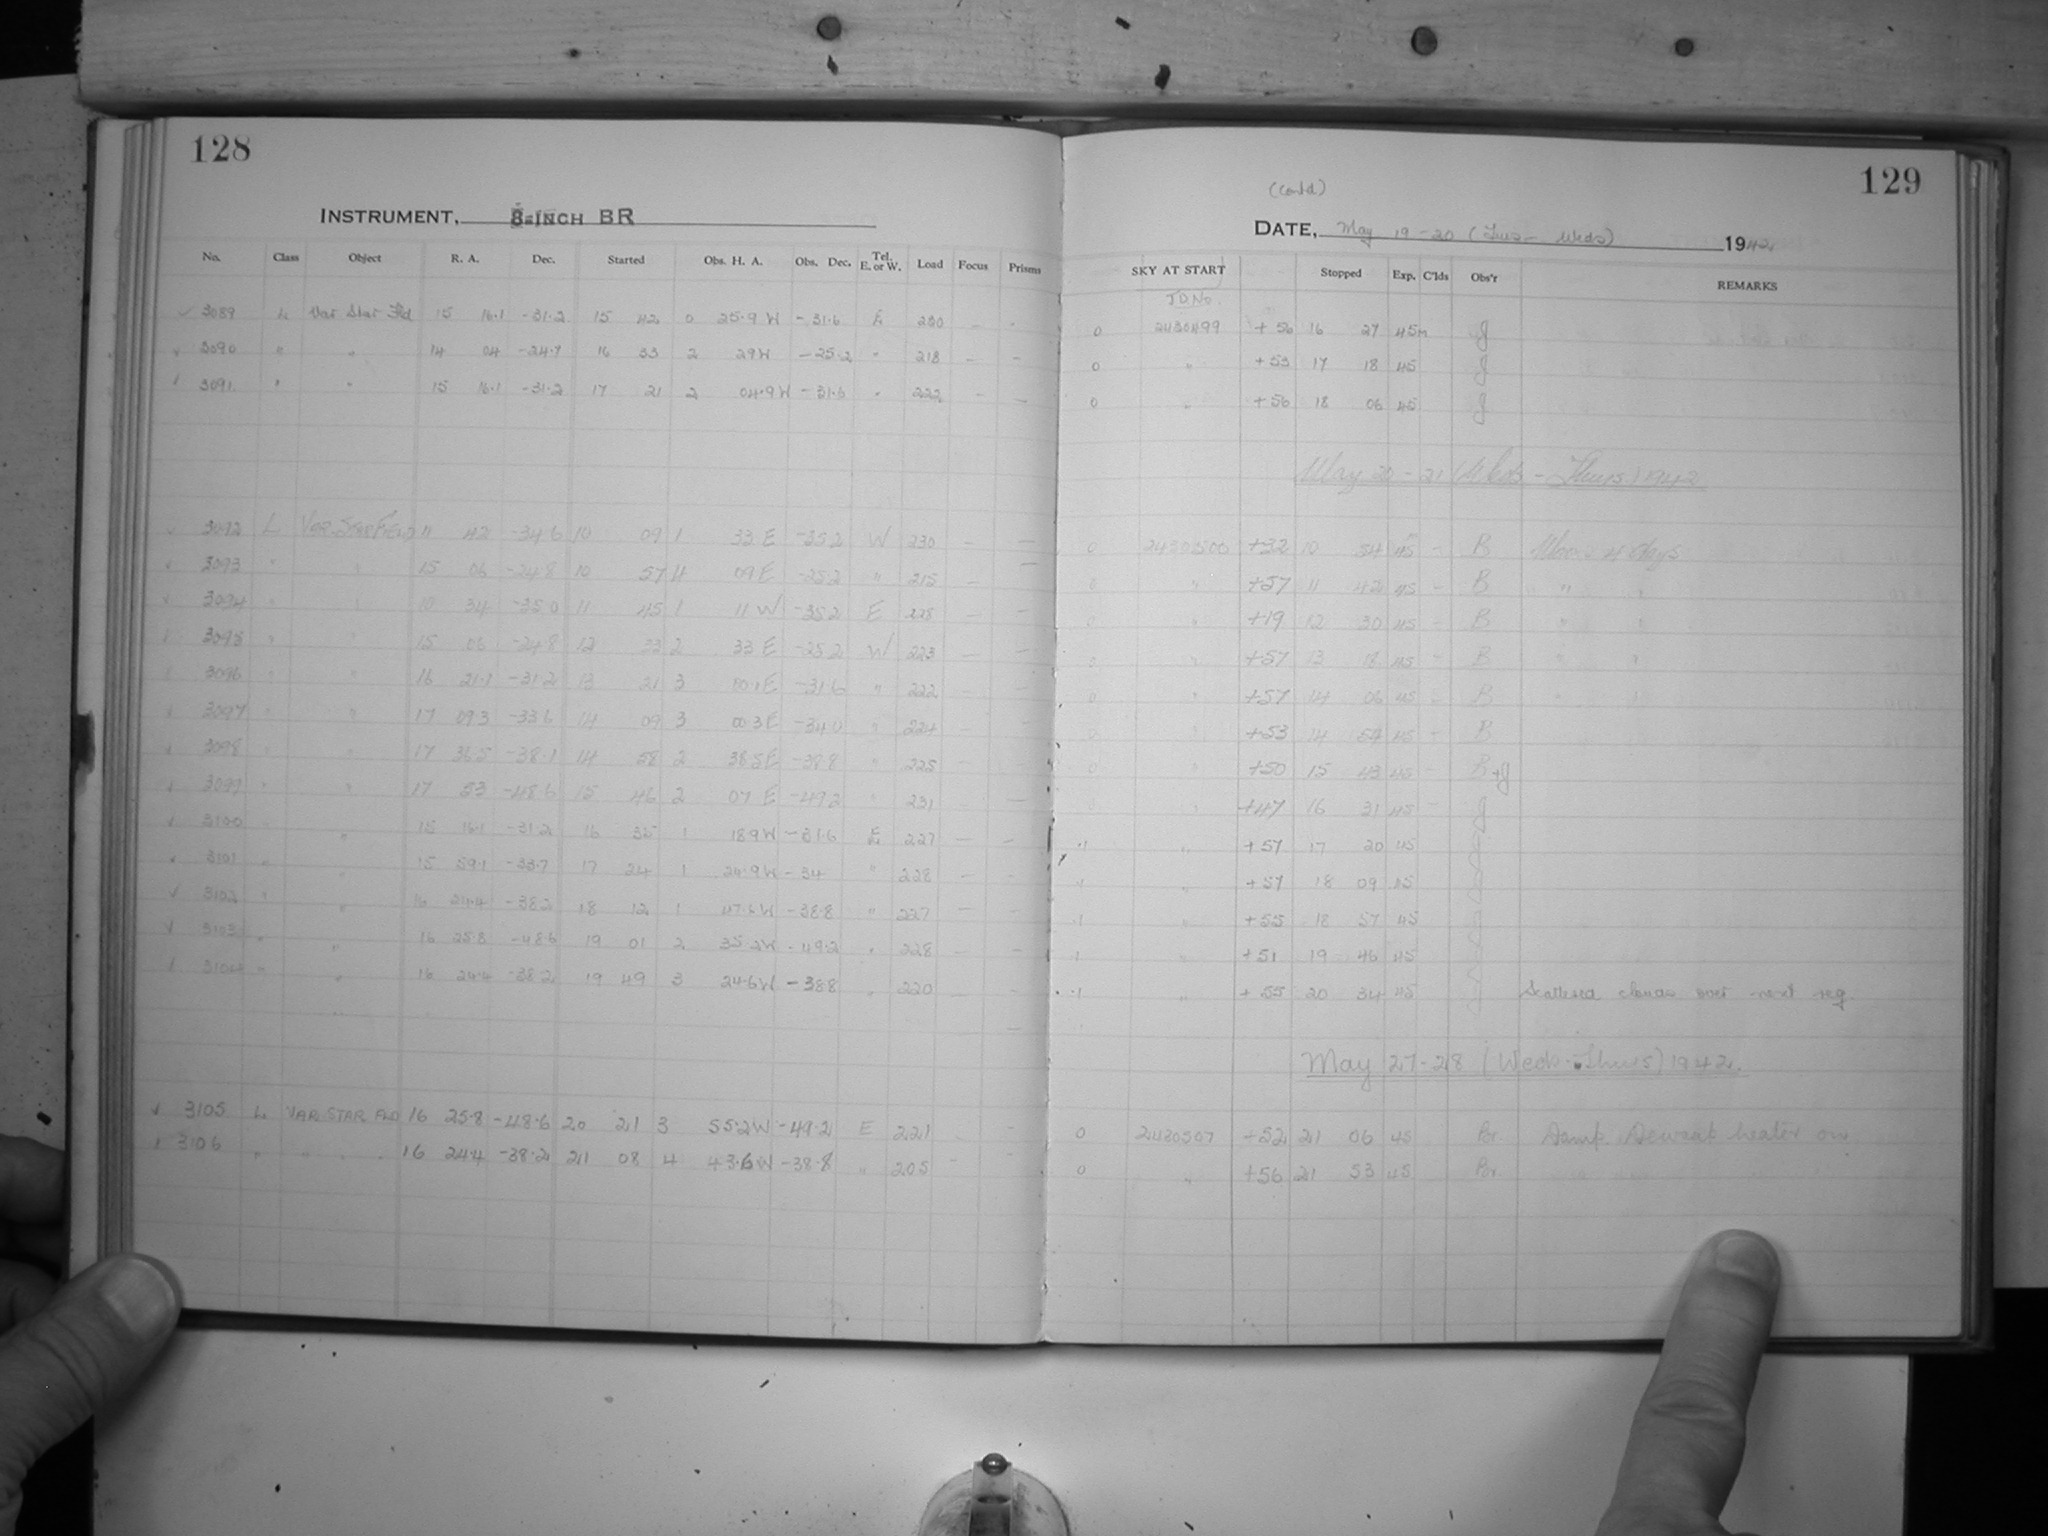 128
INSTRUMENT, 8-INCH BR
No. Class Object R. A. Dec. Started Obs. H. A. Obs. Dec. Tel. E. or W. Load Focus Prisms
3089 L Var Star Fld 15 16.1 -31.2 15 42 0 25.9 W -31.6 E 230 - -
3090 " " 14 04 -24.7 16 33 2 29 W -25.2 " 218 - -
3091 " " 15 16.1 -31.2 17 21 2 04.9 W -31.6 " 222 - -
3092 L VAR STAR FIELD 11 42 -34.6 10 09 1 33 E -35.2 W 230 - -
3093 " " 15 06 -24.8 10 57 4 09 E -25.2 " 215 - -
3094 " " 10 34 -35.0 11 45 1 11 W -35.2 E - -
3095 " " 15 06 -24.8 12 33 2 33 E -25.2 W 223 - -
3096 " " 16 21.1 -31.2 13 21 3 00.1 E -31.6 " 222 - -
3097 " " 17 09.3 -33.6 14 09 3 00.3 E -34.0 " 224 - -
3098 " " 17 36.5 -38.1 14 58 2 38.5 E -38.8 " 225 - -
3099 " " 17 53 -48.6 15 46 2 07 E -49.2 " 231 - -
3100 " " 15 16.1 -31.2 16 35 1 18.9 W -31.6 E 227 - -
3101 " " 15 59.1 -33.7 17 24 1 24.9 W -34 " 228 - -
3102 " " 16 24.4 -38.2 18 12 1 47.6 W -38.8 " 227 - -
3103 " " 16 25.8 -48.6 19 01 2 35.2 W -49.2 " 228 - -
3104 " " 16 24.4 -38.2 19 49 3 24.6 W -38.8 " 220 - -
3105 L VAR STAR FLD 16 25.8 -48.6 20 21 3 55.2 W -49.2 E 221 - -
3106 " " " " 16 24.4 -38.2 21 08 4 43.6 W -38.8 " 205 - -
129
(Contd)
DATE, May 19-20 (Tues-Weds) 1942
SKY AT START Stopped Exp. C'lds Obs'r REMARKS
J.D. No.
0 2430499 +56 16 27 45m J
0 " +53 17 18 45 J
0 " +56 18 06 45 J
May 20-21 (Weds-Thurs) 1942
0 2430500 +32 10 54 45 - B Moon 4 days
0 " +57 11 42 45 - B " "
0 " +19 12 30 45 - B " "
0 " +57 13 18 45 - B " "
0 " +57 14 06 45 - B " "
0 " +53 14 54 45 - B
0 " +50 15 43 45 - B+J
" +47 16 31 45 - J
.1 " +57 17 20 45
" " +57 18 09 45
.1 " +55 18 57 45
.1 " +51 19 46 45
.1 " +55 20 34 45 Scattered clouds over next reg.
May 27-28 (Weds-Thurs) 1942.
0 2430507 +52 21 06 45 Br. Damp. Dewcap heater on
0 " +56 21 53 45 Br.